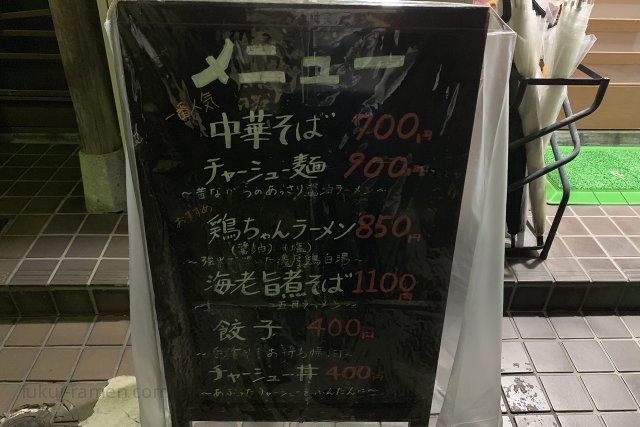 メニュー
一番人気
中華そば 700円
チャーシュー麺 900円
〜昔ながらのあっさり醤油ラーメン〜
おすすめ
鶏ちゃんラーメン 850円
(醤油) (塩)
濃厚鶏白湯〜
海老旨煮そば 1100円
餃子 400円
チャーシュー丼 400円
〜あぶったチャーシューをふんだんに〜
fukui-ramen.com